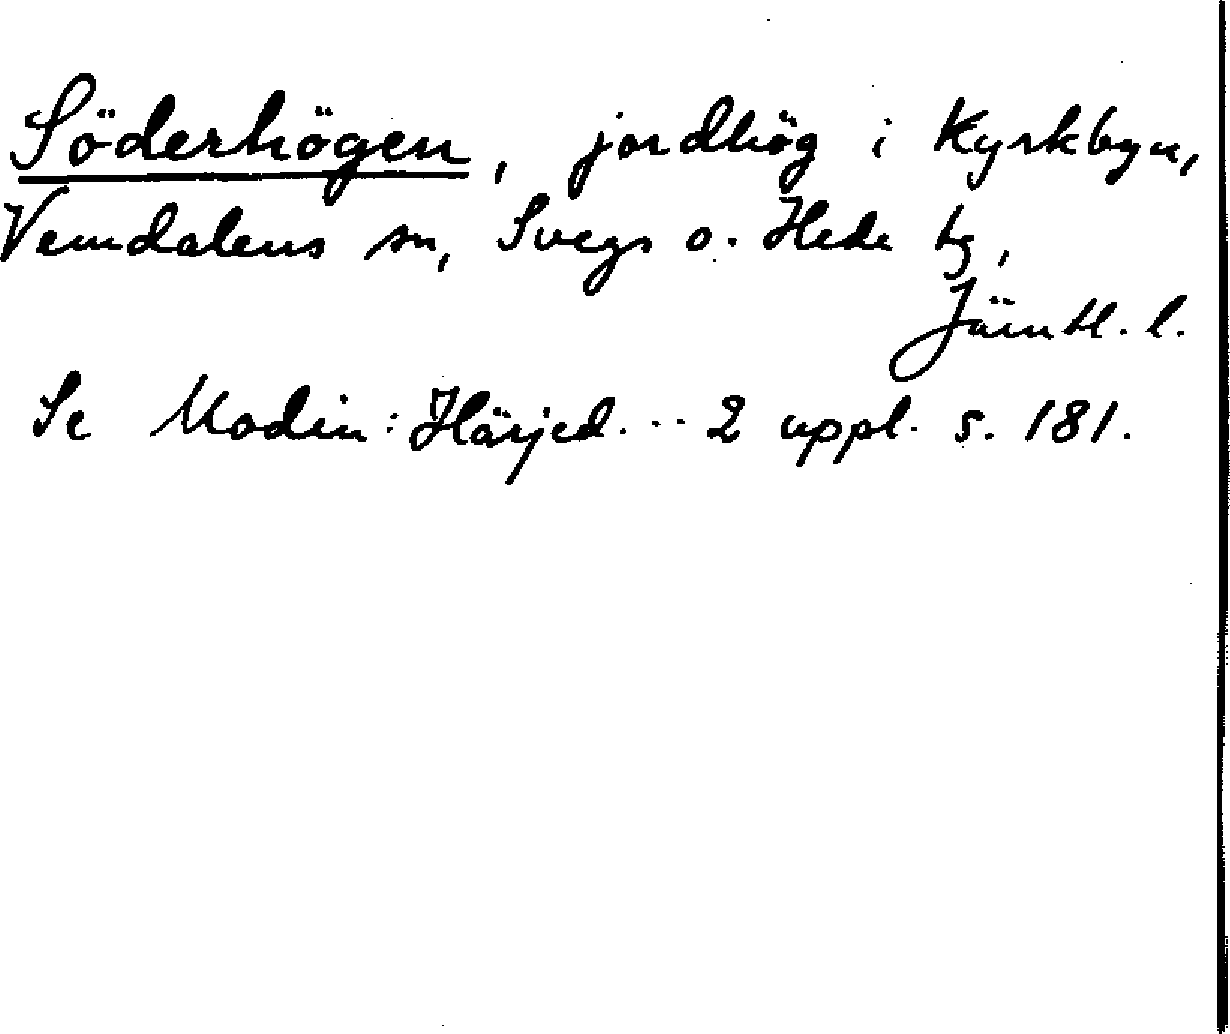 Söderhögen, jordhög i Kyrkbyn,
Vemdalens sn, Svegs o. Hede tg,
Jämtl. l.
Se Modin: Härjed. .. 2 uppl. s. 181.